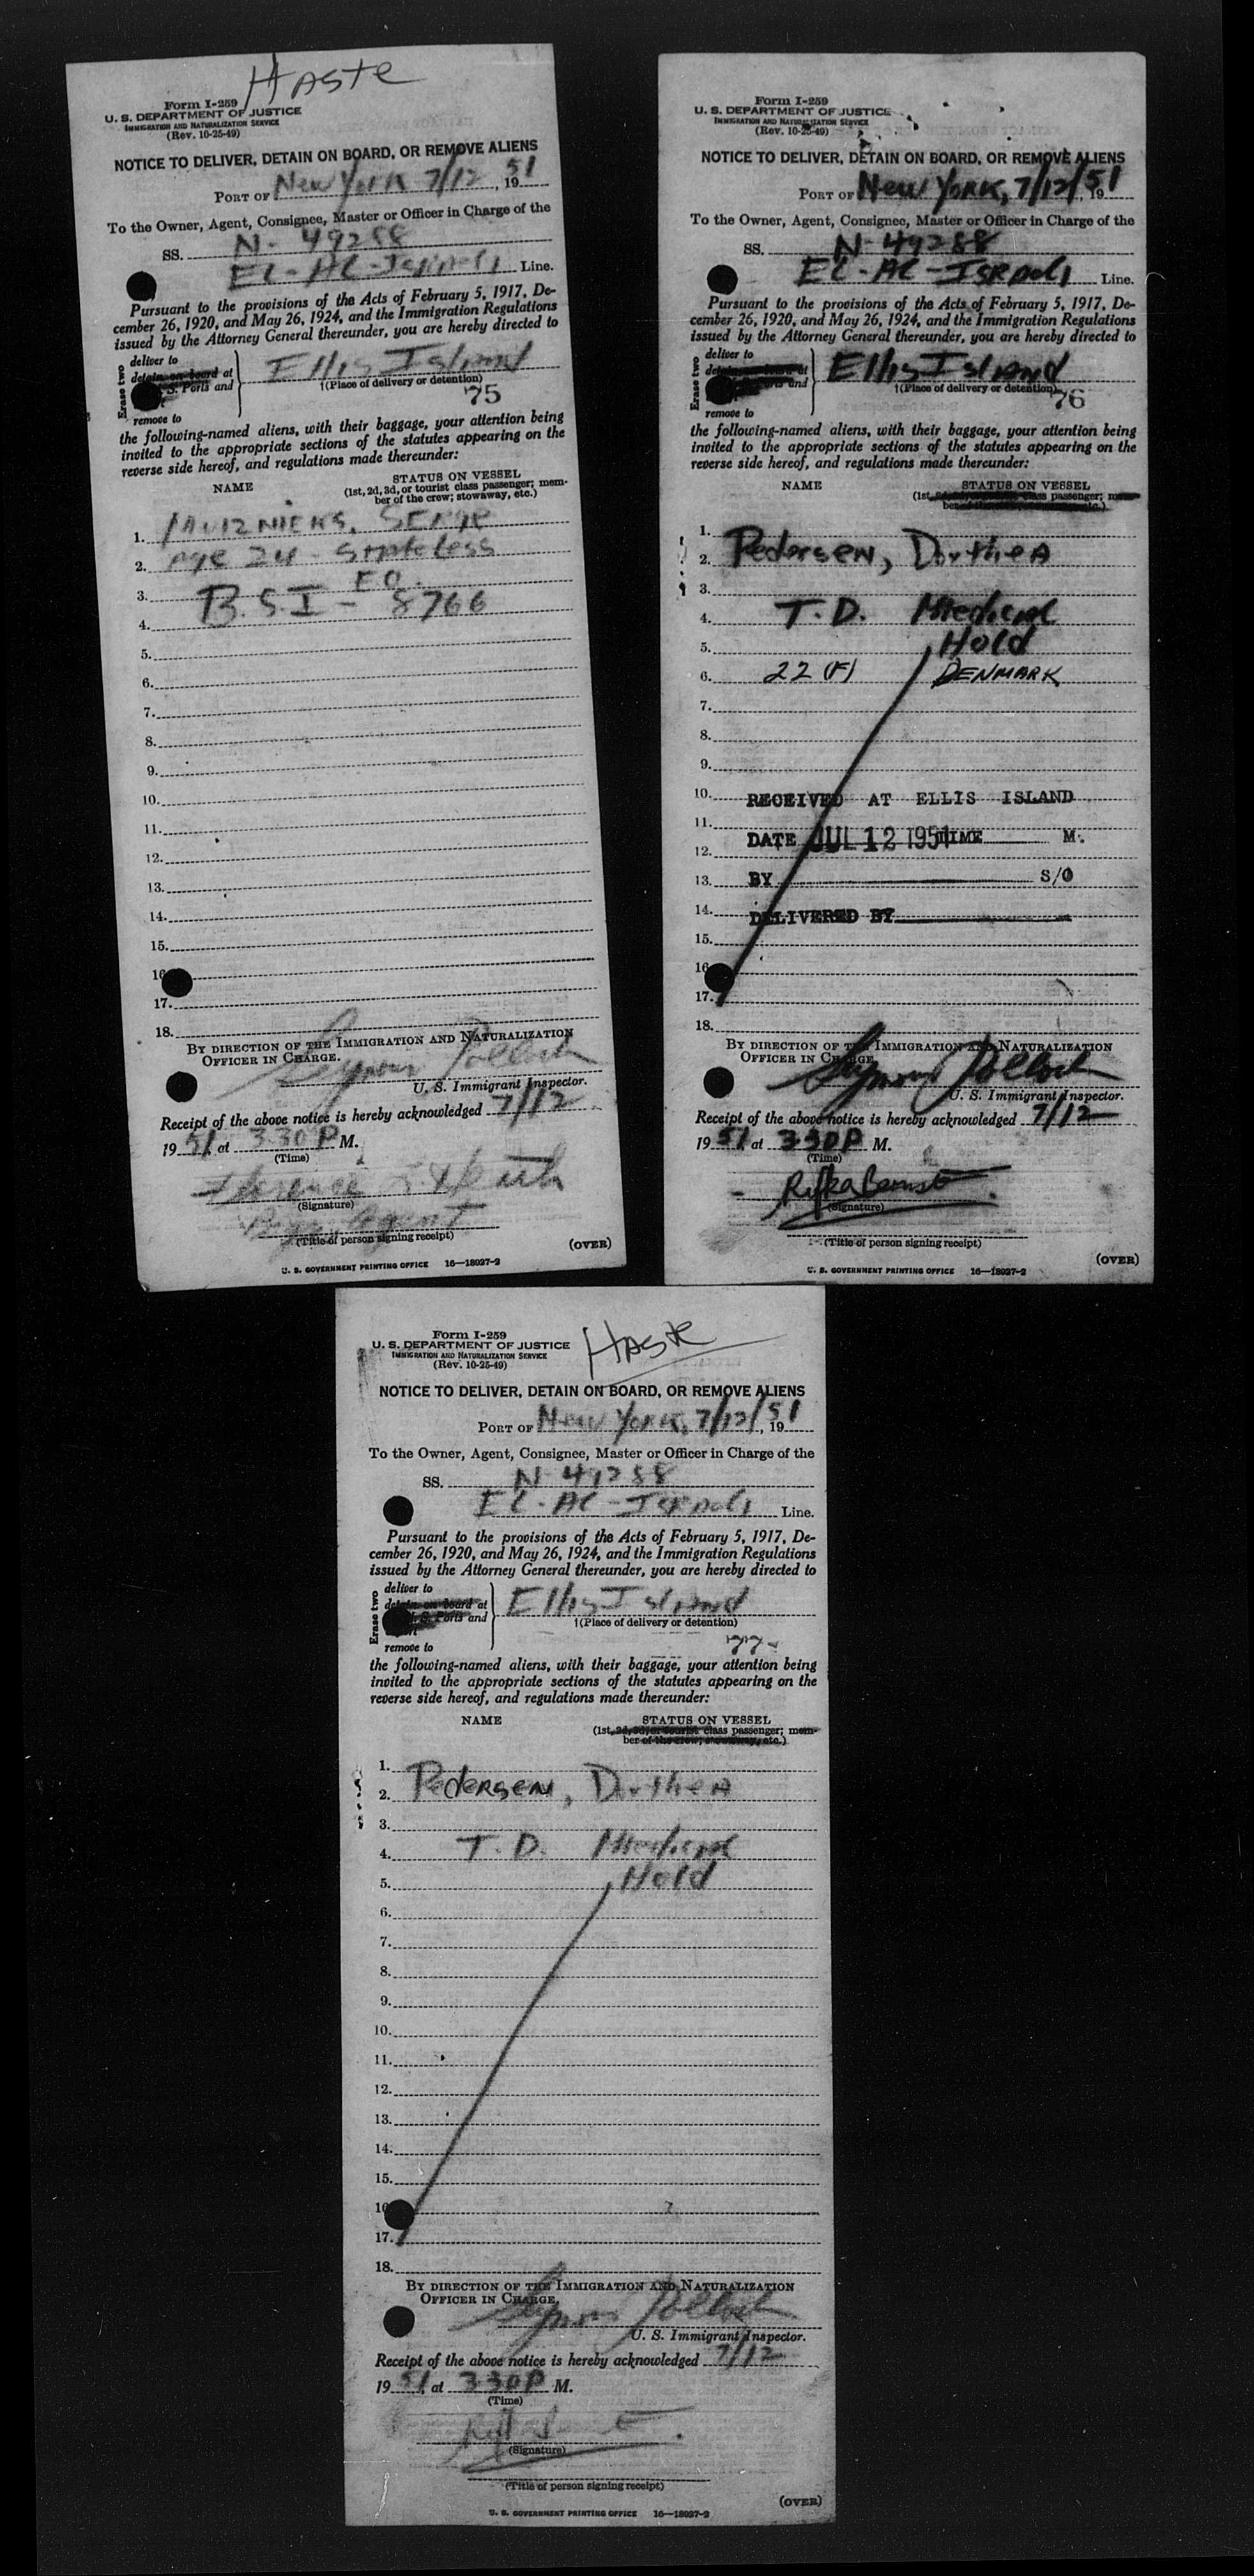 Haste
Form I-259
U. S. DEPARTMENT OF JUSTICE
IMMIGRATION AND NATURALIZATION SERVICE
(Rev. 10-25-49)
NOTICE TO DELIVER, DETAIN ON BOARD, OR REMOVE ALIENS
PORT OF New York 7/12, 1951
To the Owner, Agent, Consignee, Master or Officer in Charge of the
SS. N-49288
EL-AL-Israeli Line.
Pursuant to the provisions of the Acts of February 5, 1917, De-
cember 26, 1920, and May 26, 1924, and the Immigration Regulations
issued by the Attorney General thereunder, you are hereby directed to
Erase two
deliver to
detain on board at
S. Ports and
remove to
Ellis Island
†(Place of delivery or detention)
75
the following-named aliens, with their baggage, your attention being
invited to the appropriate sections of the statutes appearing on the
reverse side hereof, and regulations made thereunder:
NAME
STATUS ON VESSEL
(1st, 2d, 3d, or tourist class passenger; mem-
ber of the crew; stowaway, etc.)
1.
2. Age 24 - Stateless
3. B.S.I - EO. 8766
4.
5.
6.
7.
8.
9.
10.
11.
12.
13.
14.
15.
16
17.
18.
BY DIRECTION OF THE IMMIGRATION AND NATURALIZATION
OFFICER IN CHARGE.
Seymour Pollock
U. S. Immigrant Inspector.
Receipt of the above notice is hereby acknowledged 7/12
1951, at 3:30 P M.
(Time)
Florence
(Signature)
Agent
(Title of person signing receipt)
(OVER)
U. S. GOVERNMENT PRINTING OFFICE 16—18027-2
Form I-259
U. S. DEPARTMENT OF JUSTICE
IMMIGRATION AND NATURALIZATION SERVICE
(Rev. 10-25-49)
NOTICE TO DELIVER, DETAIN ON BOARD, OR REMOVE ALIENS
PORT OF New York, 7/12/, 1951
To the Owner, Agent, Consignee, Master or Officer in Charge of the
SS. N-49288
EL-AL-Israeli Line.
Pursuant to the provisions of the Acts of February 5, 1917, De-
cember 26, 1920, and May 26, 1924, and the Immigration Regulations
issued by the Attorney General thereunder, you are hereby directed to
Erase two
deliver to
detain on board at
Ports and
remove to
Ellis Island
†(Place of delivery or detention)
76
the following-named aliens, with their baggage, your attention being
invited to the appropriate sections of the statutes appearing on the
reverse side hereof, and regulations made thereunder:
NAME
STATUS ON VESSEL
(1st, class passenger; mem-
ber of the crew; etc.)
1.
2. Pedersen, Dorthea
3.
4. T.D. Medical
5. Hold
6. 22 (F) DENMARK
7.
8.
9.
10. RECEIVED AT ELLIS ISLAND
11.
12. DATE JUL 12 1951 TIME M.
13. BY S/O
14. DELIVERED BY
15.
16
17.
18.
BY DIRECTION OF THE IMMIGRATION AND NATURALIZATION
OFFICER IN CHARGE.
Seymour Pollock
U. S. Immigrant Inspector.
Receipt of the above notice is hereby acknowledged 7/12
1951, at 3:30 P M.
(Time)
Rifka
(Signature)
(Title of person signing receipt)
(OVER)
U. S. GOVERNMENT PRINTING OFFICE 16—18027-2
Form I-259
U. S. DEPARTMENT OF JUSTICE
IMMIGRATION AND NATURALIZATION SERVICE
(Rev. 10-25-49)
Haste
NOTICE TO DELIVER, DETAIN ON BOARD, OR REMOVE ALIENS
PORT OF New York, 7/12/, 1951
To the Owner, Agent, Consignee, Master or Officer in Charge of the
SS. N-49288
EL-AL-Israeli Line.
Pursuant to the provisions of the Acts of February 5, 1917, De-
cember 26, 1920, and May 26, 1924, and the Immigration Regulations
issued by the Attorney General thereunder, you are hereby directed to
Erase two
deliver to
detain on board at
S. Ports and
remove to
Ellis Island
†(Place of delivery or detention)
77
the following-named aliens, with their baggage, your attention being
invited to the appropriate sections of the statutes appearing on the
reverse side hereof, and regulations made thereunder:
NAME
STATUS ON VESSEL
(1st, 2d, 3d, or tourist class passenger; mem-
ber of the crew; stowaway, etc.)
1.
2. Pedersen, Dorthea
3.
4. T.D. Medical
5. Hold
6.
7.
8.
9.
10.
11.
12.
13.
14.
15.
16
17.
18.
BY DIRECTION OF THE IMMIGRATION AND NATURALIZATION
OFFICER IN CHARGE.
Seymour Pollock
U. S. Immigrant Inspector.
Receipt of the above notice is hereby acknowledged 7/12
1951, at 3:30 P M.
(Time)
(Signature)
(Title of person signing receipt)
(OVER)
U. S. GOVERNMENT PRINTING OFFICE 16—18027-2